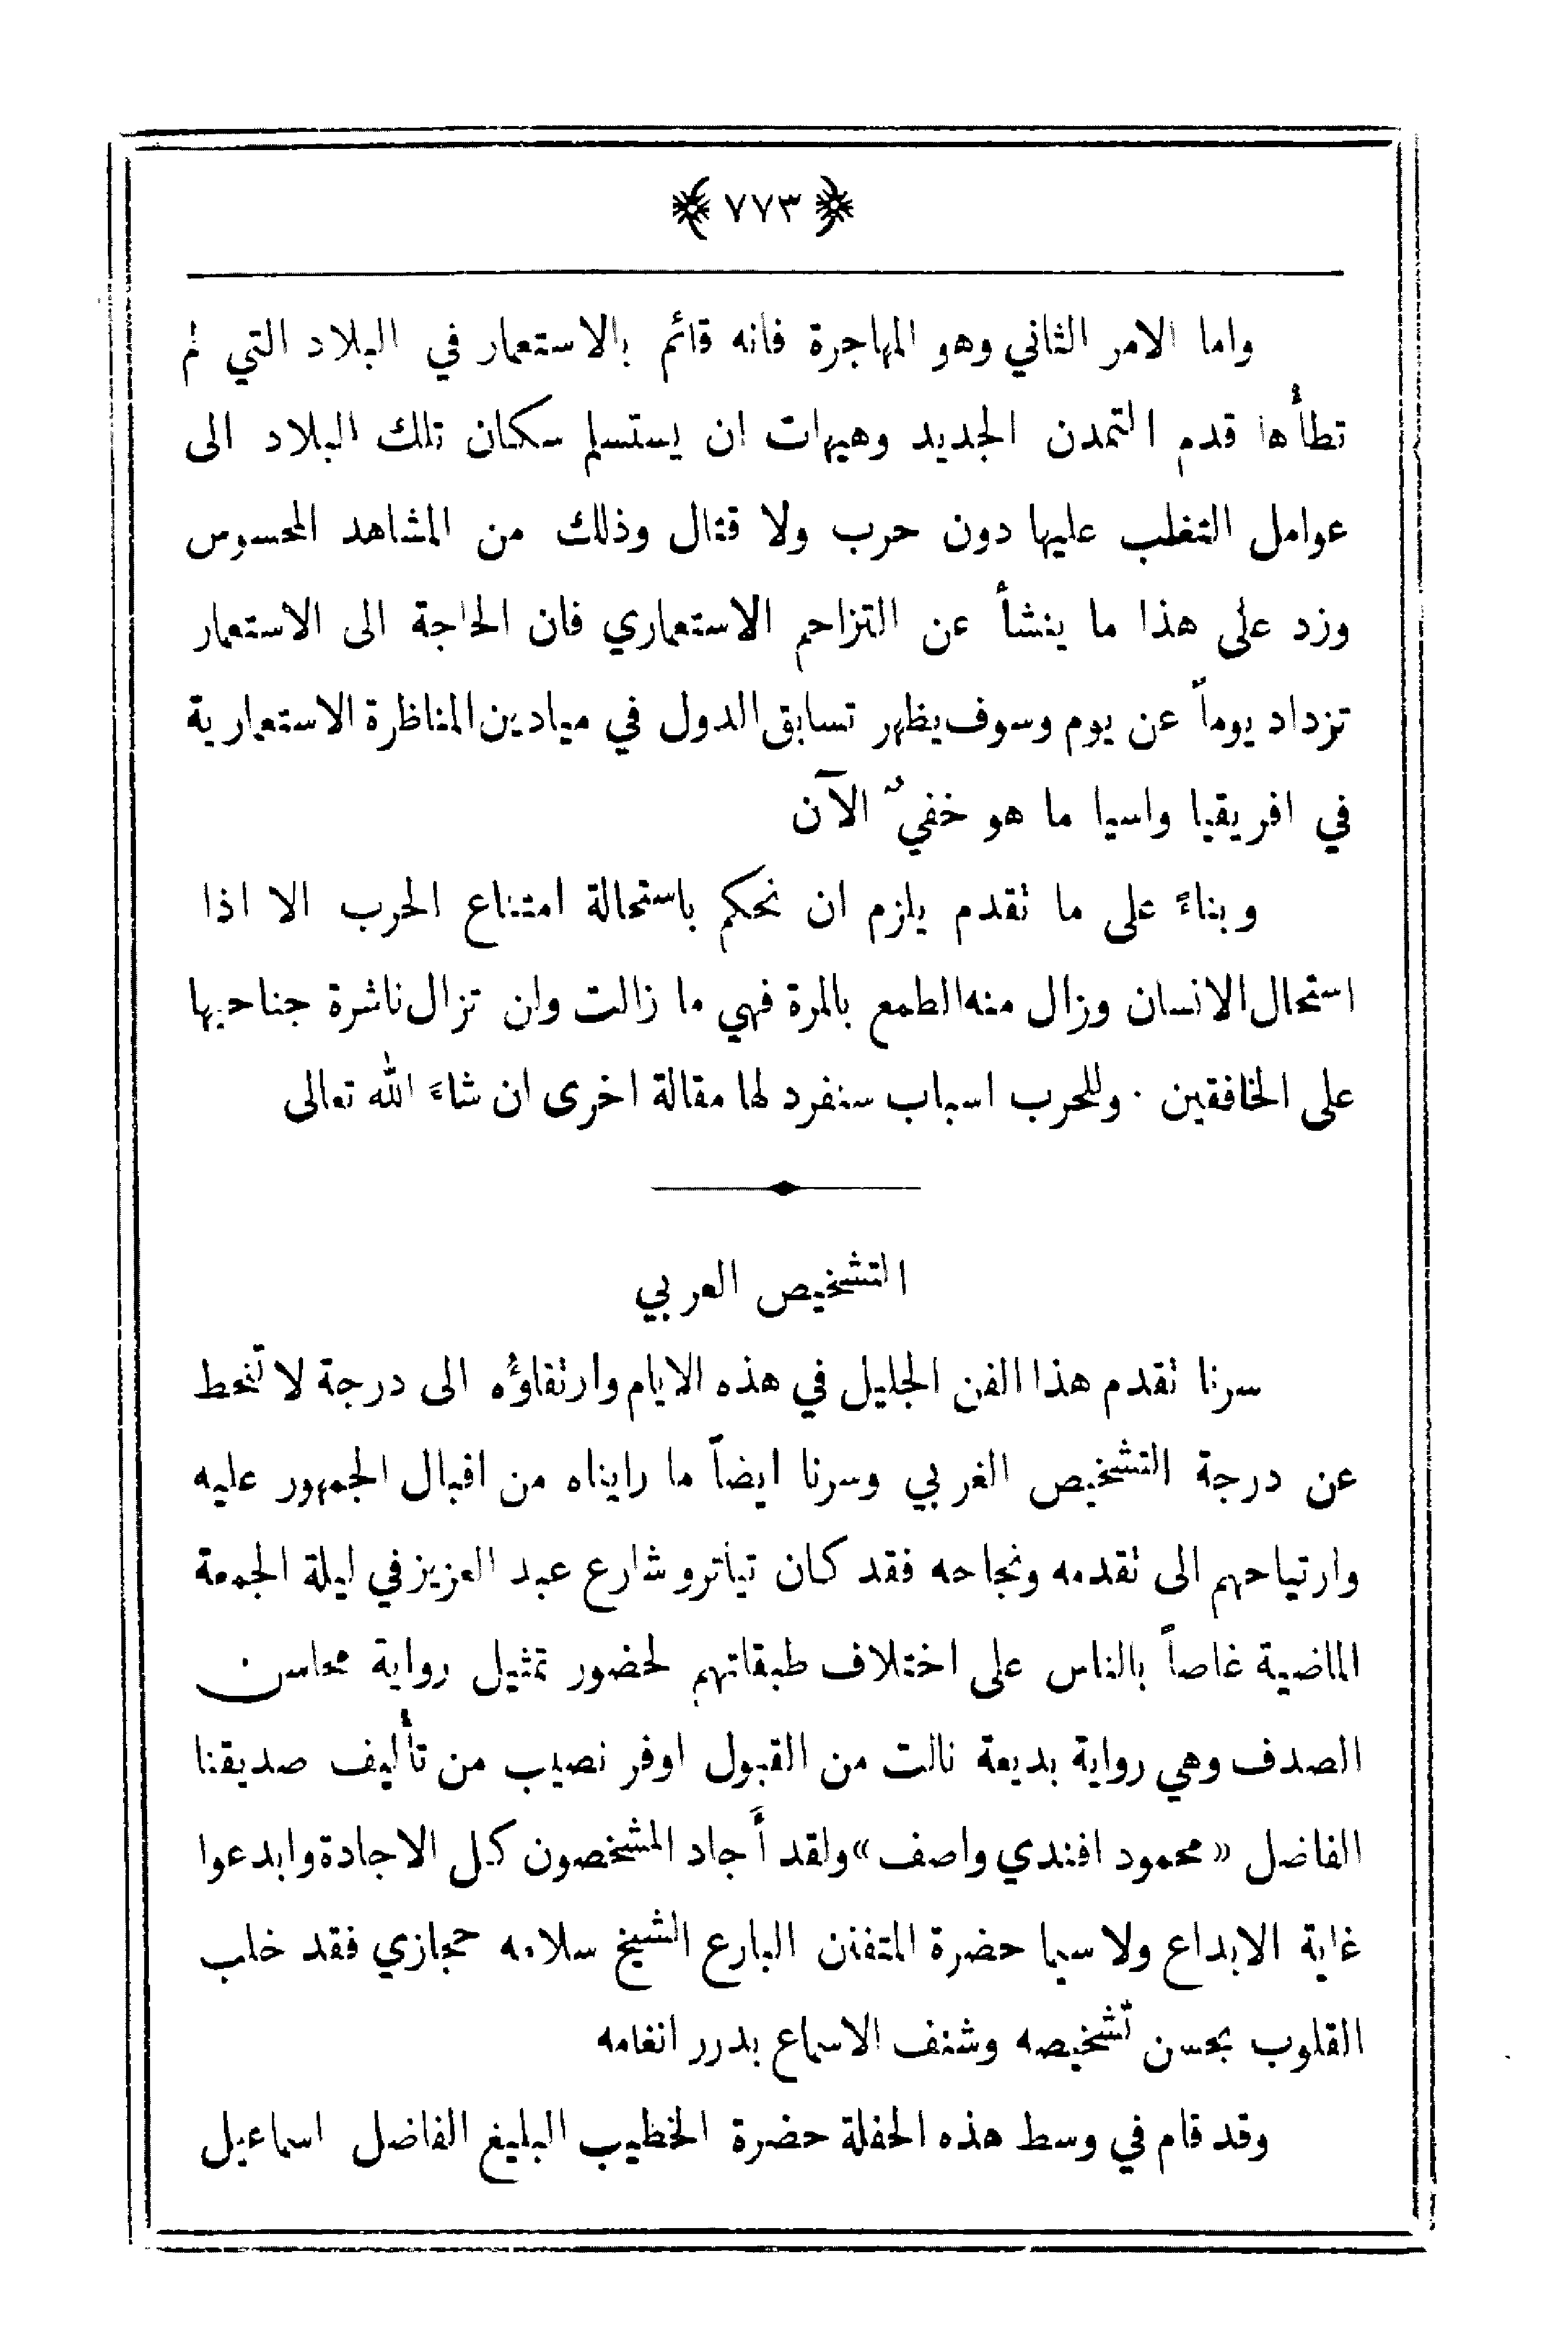 ﴿ ٧٧٣ ﴾
واما الامر الثاني وهو المهاجرة فانه قائم بالاستعمار في البلاد التي لم
تطأها قدم التمدن الجديد وهيهات ان يستسلم سكان تلك البلاد الى
عوامل التغلب عليها دون حرب ولا قتال وذلك من المشاهد المحسوس
وزد على هذا ما ينشأ عن التزاحم الاستعماري فان الحاجة الى الاستعمار
تزداد يوماً عن يوم وسوف يظهر تسابق الدول في ميادين المناظرة الاستعمارية
في افريقيا واسيا ما هو خفيٌ الآن
وبناءً على ما تقدم يلزم ان نحكم باستحالة امتناع الحرب الا اذا
استحال الانسان وزال منه الطمع بالمرة فهي ما زالت ولن تزال ناشرة جناحيها
على الخافقين . وللحرب اسباب سنفرد لها مقالة اخرى ان شاءَ الله تعالى
التشخيص العربي
سرنا تقدم هذا الفن الجليل في هذه الايام وارتقاؤُه الى درجة لا تنحط
عن درجة التشخيص الغربي وسرنا ايضاً ما رايناه من اقبال الجمهور عليه
وارتياحهم الى تقدمه ونجاحه فقد كان تيأترو شارع عبد العزيز في ليلة الجمعة
الماضية غاصاً بالناس على اختلاف طبقاتهم لحضور تمثيل رواية محاسن
الصدف وهي رواية بديعة نالت من القبول اوفر نصيب من تأليف صديقنا
الفاضل «محمود افندي واصف» ولقد أَجاد المشخصون كل الاجادة وابدعوا
غاية الابداع ولا سيما حضرة المتفنن البارع الشيخ سلامه حجازي فقد خلب
القلوب بحسن تشخيصه وشنف الاسماع بدرر انغامه
وقد قام في وسط هذه الحفلة حضرة الخطيب البليغ الفاضل اسماعيل